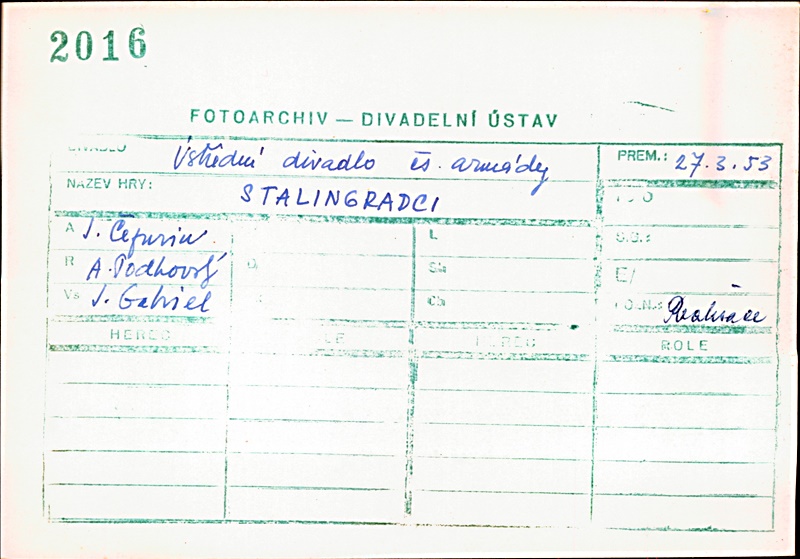 2016
FOTOARCHIV — DIVADELNÍ ÚSTAV
DIVADLO Ústřední divadlo čs. armády PREM.: 27.3.53
NÁZEV HRY: STALINGRADCI
A J. Čepurin L
R A. Podhorský Sk
Vs J. Gabriel Ch
HEREC ROLE